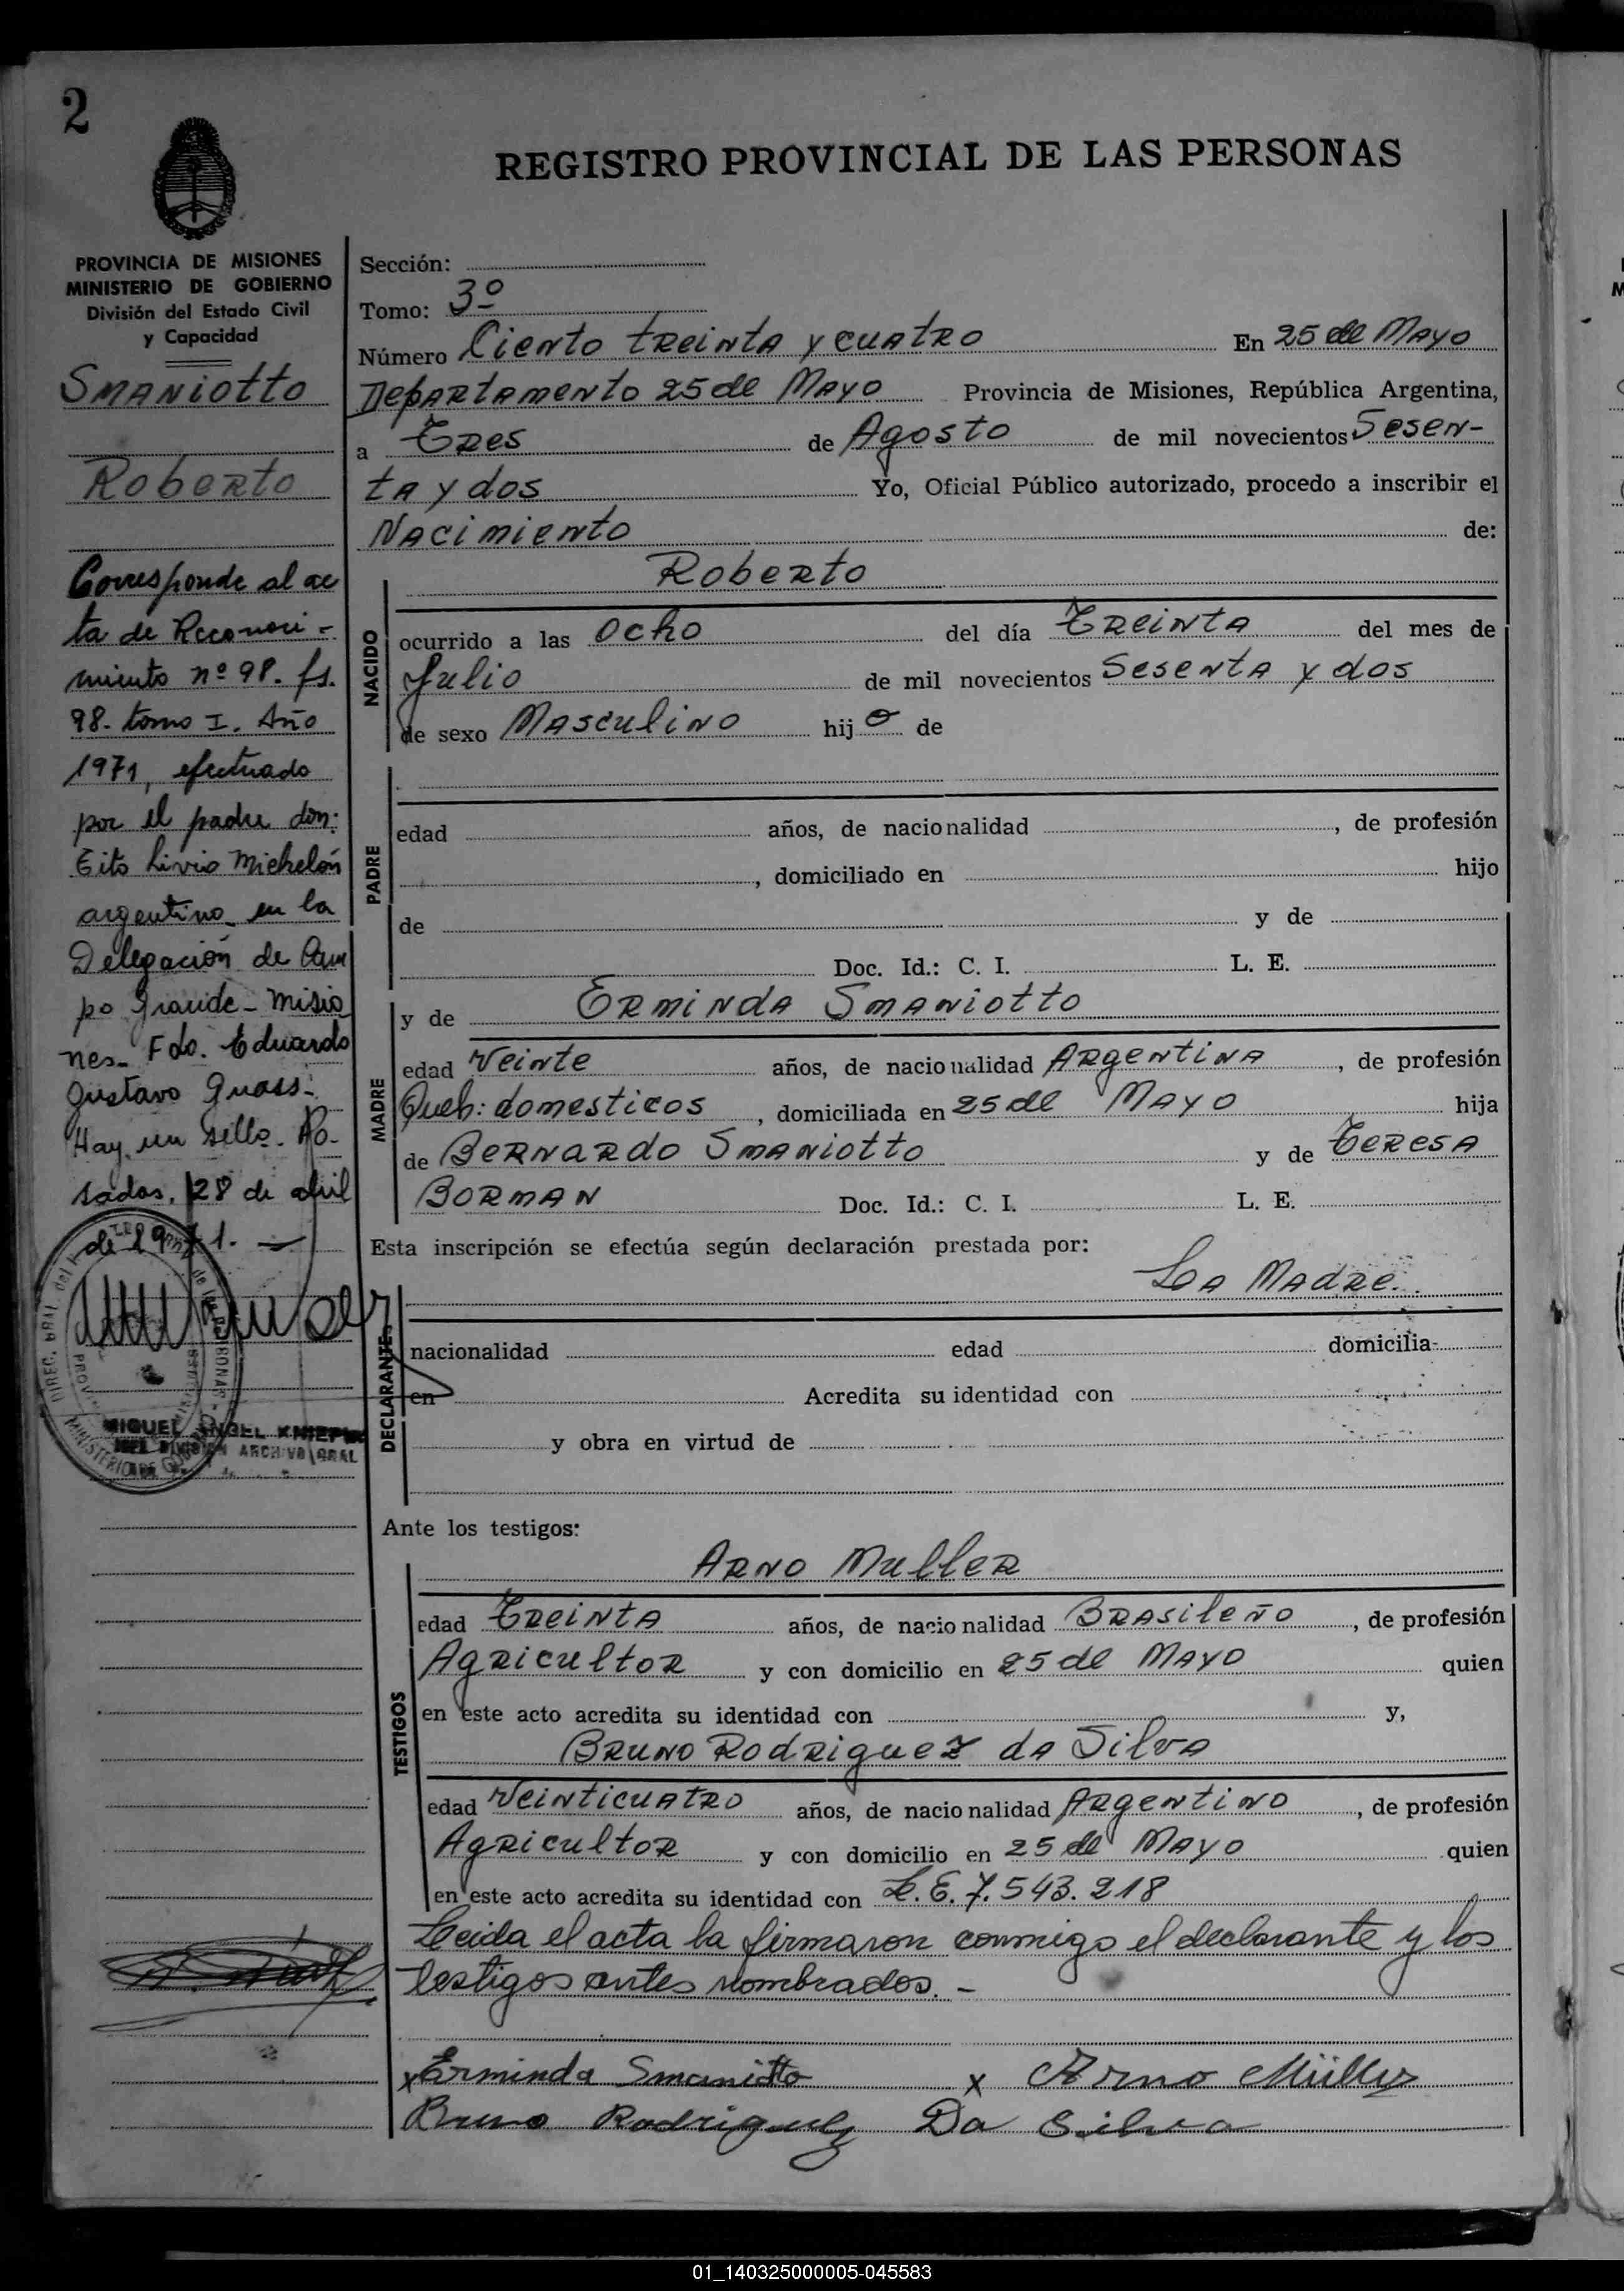 2
REGISTRO PROVINCIAL DE LAS PERSONAS
PROVINCIA DE MISIONES
MINISTERIO DE GOBIERNO
División del Estado Civil
y Capacidad
Smaniotto
Roberto
Corresponde al ac
ta de Reconoci-
miento nº 98. fs.
98. tomo I. Año
1971, efectuado
por el padre don:
Tito Livio Michelón
argentino en la
Delegación de Cam
po Grande - Misio
nes - Fdo. Eduardo
Gustavo Guass.
Hay un sello. Po-
sadas, 28 de abril
de 1971. -
MIGUEL ANGEL
JEFE DIVISION ARCHIVO GRAL
Sección:
Tomo: 3º
Número Ciento treinta y cuatro En 25 de Mayo
Departamento 25 de Mayo Provincia de Misiones, República Argentina,
a Tres de Agosto de mil novecientos Sesen-
ta y dos Yo, Oficial Público autorizado, procedo a inscribir el
Nacimiento de:
Roberto
NACIDO
ocurrido a las Ocho del día Treinta del mes de
Julio de mil novecientos Sesenta y dos
de sexo Masculino hijo de
PADRE
edad años, de nacionalidad , de profesión
, domiciliado en hijo
de y de
Doc. Id.: C. I. L. E.
y de Erminda Smaniotto
MADRE
edad Veinte años, de nacionalidad Argentina , de profesión
Queh: domesticos , domiciliada en 25 de Mayo hija
de Bernardo Smaniotto y de Teresa
Borman Doc. Id.: C. I. L. E.
Esta inscripción se efectúa según declaración prestada por:
La Madre.
DECLARANTE
nacionalidad edad domicilia-
en Acredita su identidad con
y obra en virtud de
Ante los testigos:
Arno Muller
TESTIGOS
edad Treinta años, de nacionalidad Brasileño , de profesión
Agricultor y con domicilio en 25 de Mayo quien
en este acto acredita su identidad con y,
Bruno Rodriguez da Silva
edad Veinticuatro años, de nacionalidad Argentino , de profesión
Agricultor y con domicilio en 25 de Mayo quien
en este acto acredita su identidad con L.E. 7.543.218
Leida el acta la firmaron conmigo el declarante y los
testigos antes nombrados. -
x Erminda Smaniotto x Arno Müller
Bruno Rodriguez Da Silva
01_140325000005-045583